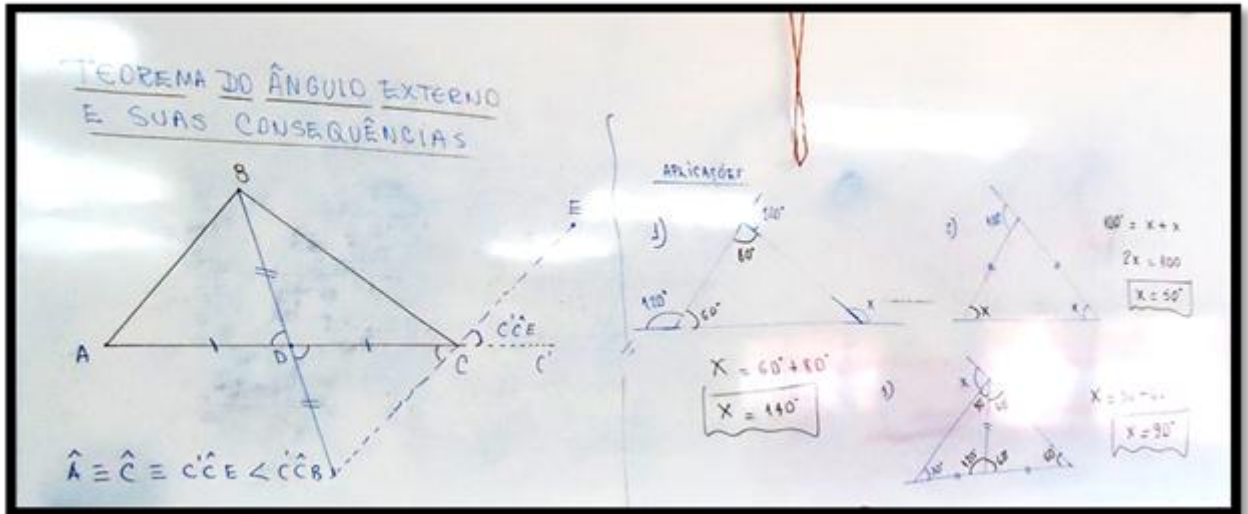 TEOREMA DO ÂNGULO EXTERNO
E SUAS CONSEQUÊNCIAS
B
E
A
D
C
C'ĈE
C'
Â ≡ Ĉ ≡ C'ĈE < C'ĈB
APLICAÇÕES
1)
80°
120°
60°
x
X = 60° + 80°
X = 140°
x
x
100° = x + x
2x = 100
x = 50°
x
120°
60°
60°
x = 90°